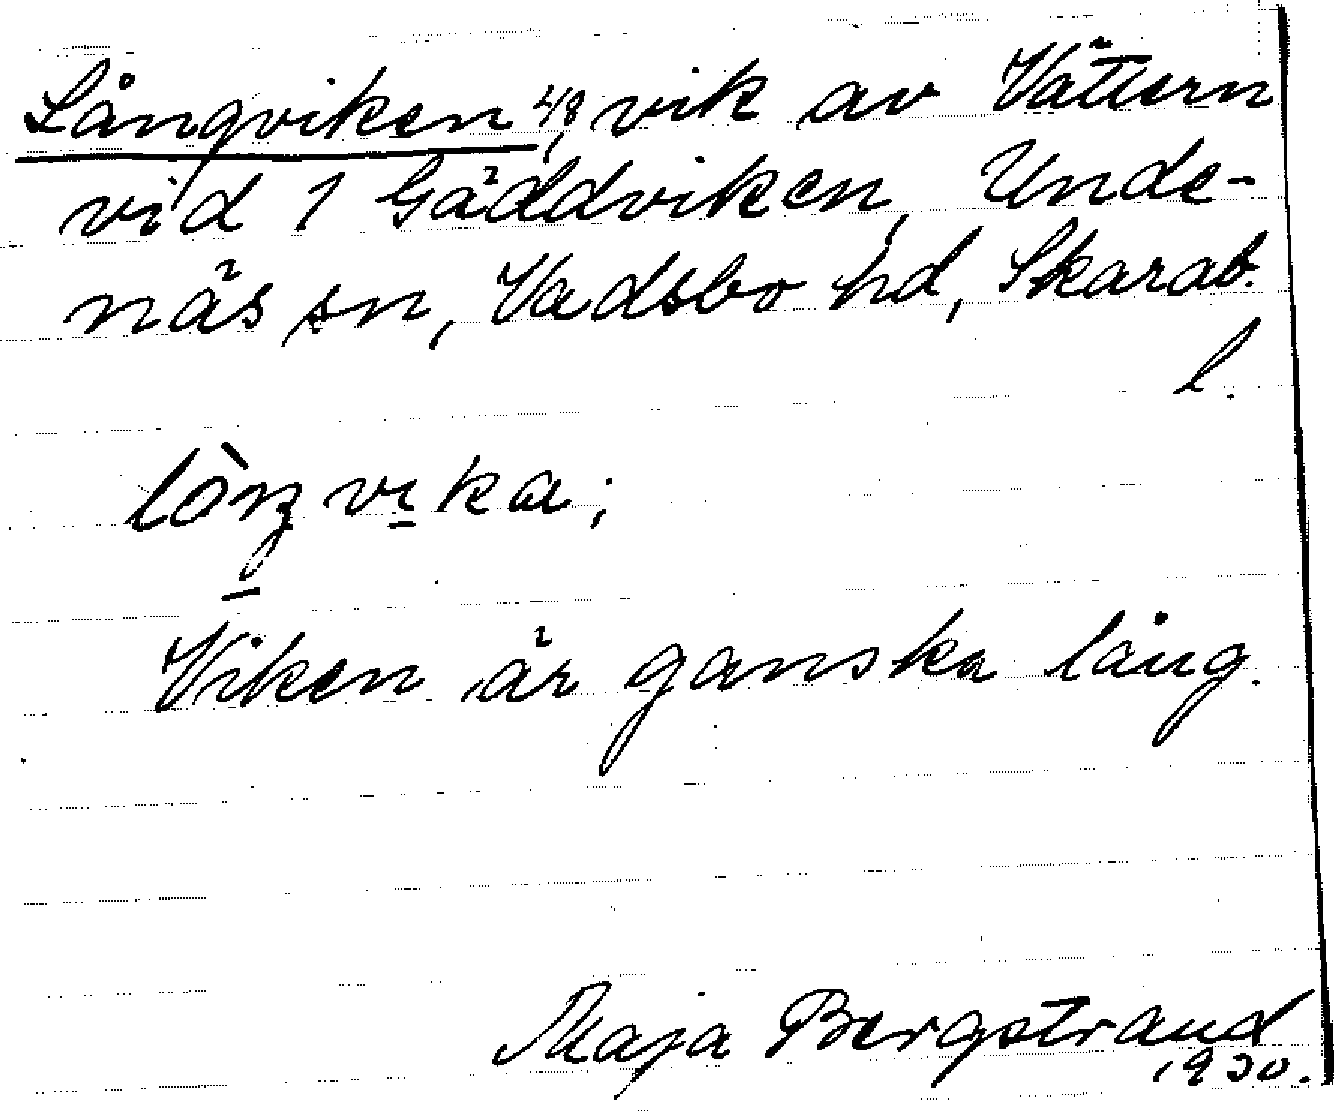 Långviken 4/8, vik av Vättern
vid 1 Gäddviken, Unde-
näs sn, Vadsbo hd, Skarab.
l.
Viken är ganska lång.
Maja Bergstrand
1930.